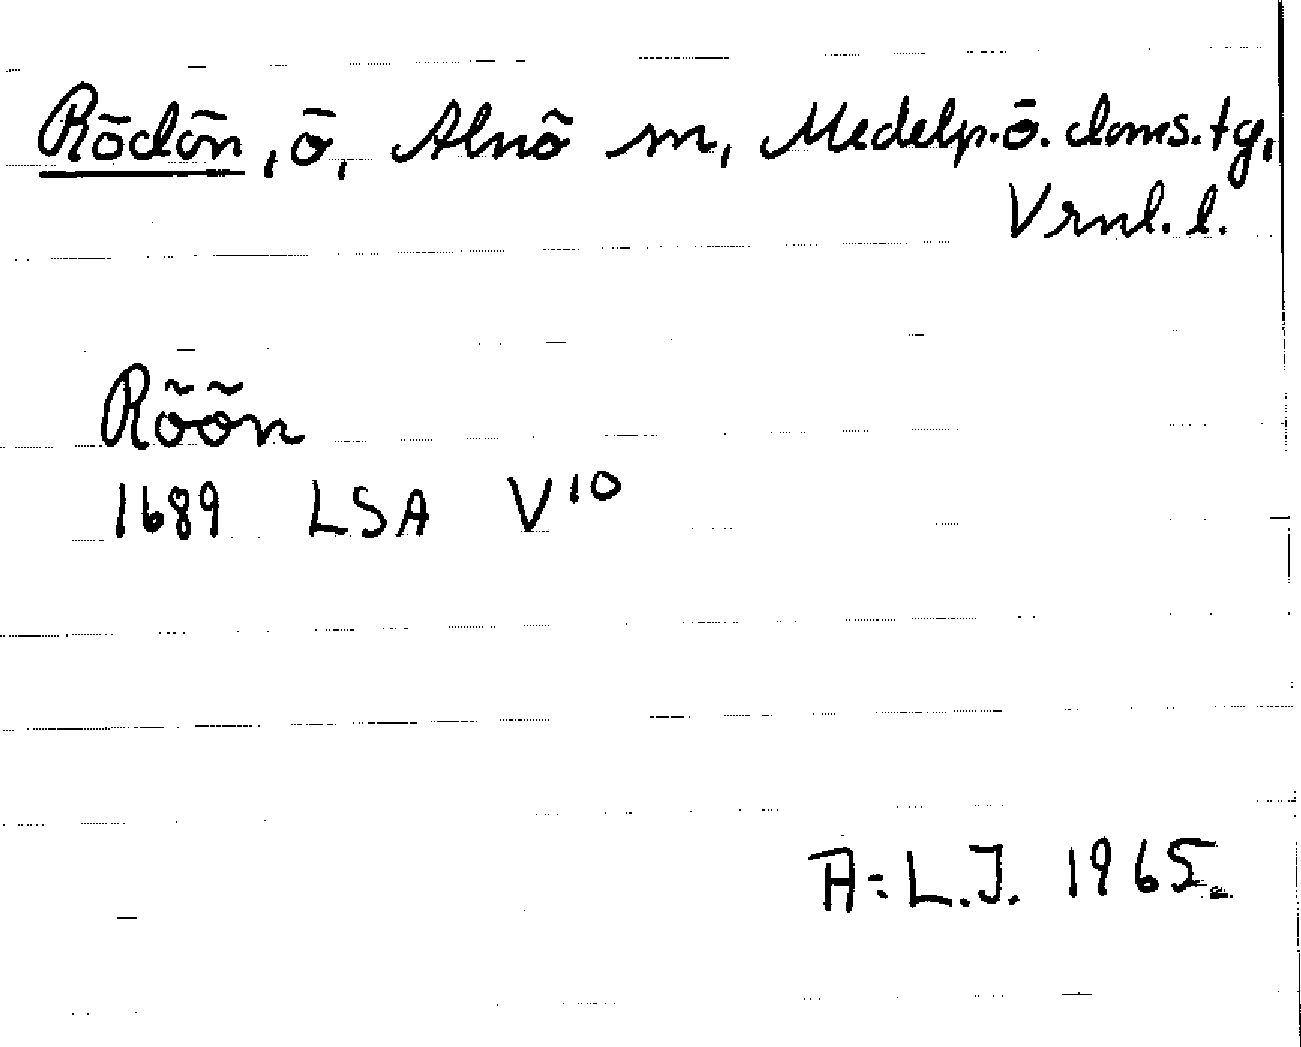 Rödön, ö, Alnö sn, Medelp.ö. doms.tg,
Vrnl. l.
Röön
1689 LSA V¹⁰
A:L.J. 1965.